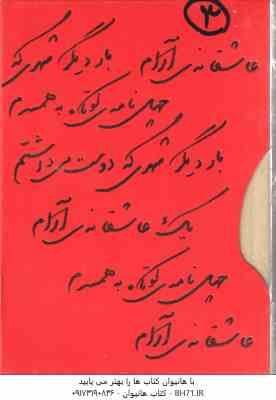 ۳
عاشقانه‌ی آرام بار دیگر شهری که
چهل نامه‌ی کوتاه به همسرم
بار دیگر شهری که دوست می‌داشتم
یک عاشقانه‌ی آرام
چهل نامه‌ی کوتاه به همسرم
عاشقانه‌ی آرام
با هانیوان کتاب ها را بهتر می یابید
BH71.IR - کتاب هانیوان - ۰۹۱۷۳۱۹۰۸۳۶